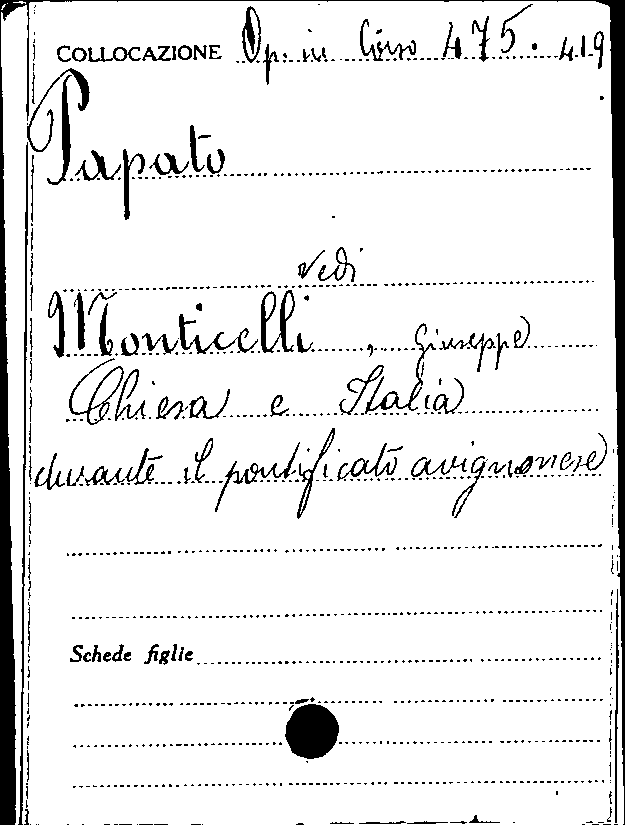 COLLOCAZIONE Op. in Corso 475. 419
Papato
vedi
Monticelli, Giuseppe
Chiesa e Italia
durante il pontificato avignonese
Schede figlie